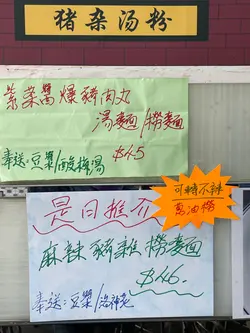 猪杂汤粉
紫菜醬爆豬肉丸
湯麵/撈麵
奉送:豆漿/酸梅湯 $45
可轉不辣
蔥油撈
是日推介
麻辣豬雜撈麵
$46.
奉送:豆漿/洛神花